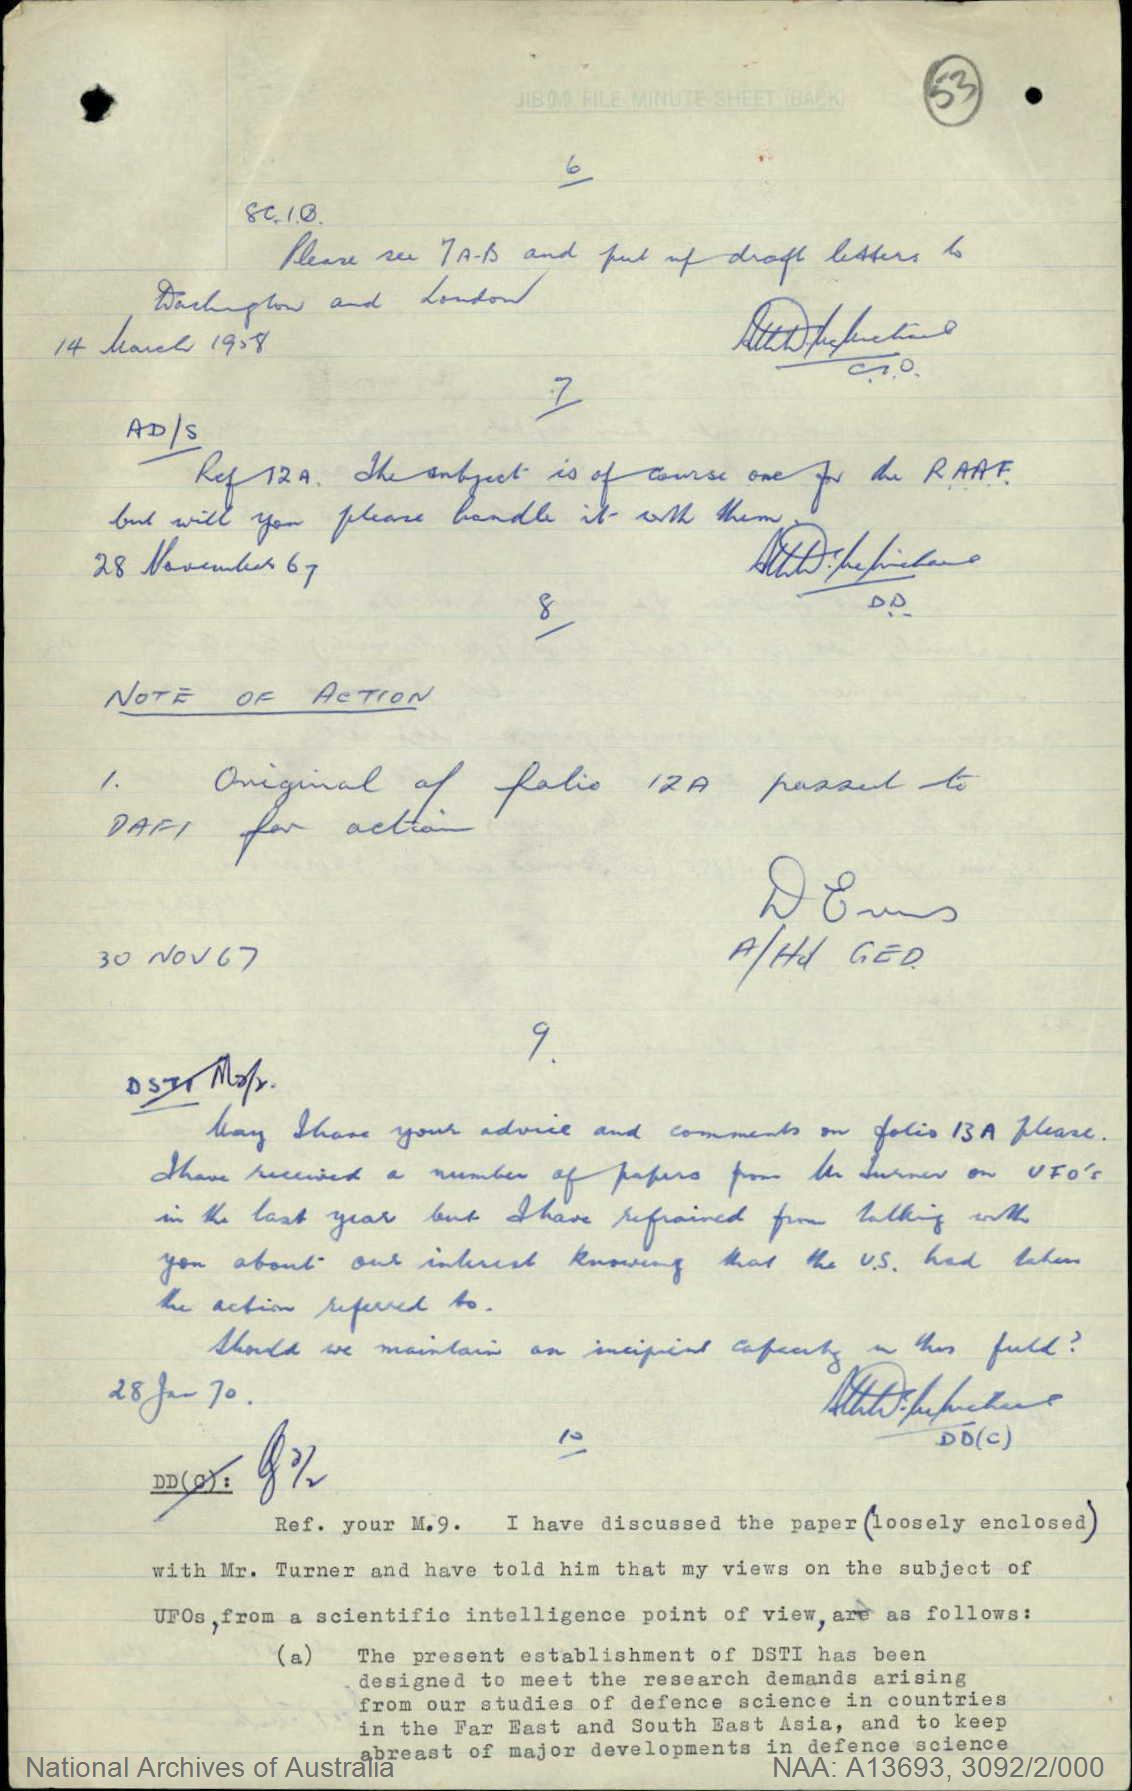 JIB(M) FILE MINUTE SHEET (BACK)
53
6
SC.I.B.
Please see 7A-B and put up draft letters to
Washington and London
14 March 1958
C.S.O.
7
AD/S
Ref 12A. The subject is of course one for the R.A.A.F.
but will you please handle it with them.
28 November 67
D.D.
8
NOTE OF ACTION
1. Original of folio 12A passed to
DAFI for action
D Evans
30 NOV 67
A/Hd GED.
9.
DSTI
May I have your advice and comments on folio 13A please.
I have received a number of papers from Mr Turner on UFO's
in the last year but I have refrained from talking with
you about our interest knowing that the U.S. had taken
the action referred to.
Should we maintain an incipient capacity in this field?
28 Jan 70.
DD(C)
10
DD(C):
Ref. your M.9. I have discussed the paper (loosely enclosed)
with Mr. Turner and have told him that my views on the subject of
UFOs, from a scientific intelligence point of view, are as follows:
(a) The present establishment of DSTI has been
designed to meet the research demands arising
from our studies of defence science in countries
in the Far East and South East Asia, and to keep
abreast of major developments in defence science
National Archives of Australia
NAA: A13693, 3092/2/000